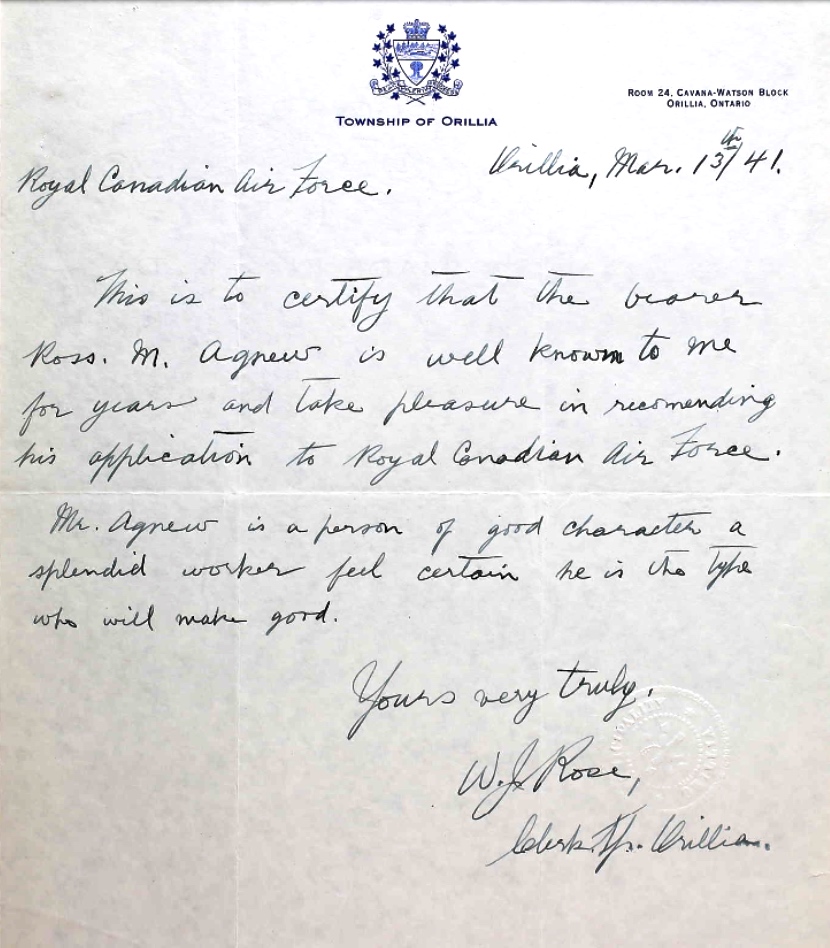 TOWNSHIP OF ORILLIA
ROOM 24, CAVANA-WATSON BLOCK
ORILLIA, ONTARIO
Orillia, Mar. 13th/41.
Royal Canadian Air Force.
This is to certify that the bearer
Ross. M. Agnew is well known to me
for years and take pleasure in recomending
his application to Royal Canadian Air Force.
Mr. Agnew is a person of good character a
splendid worker feel certain he is the type
who will make good.
Yours very truly.
W.J. Rose,
Clerk. Tp. Orillia.